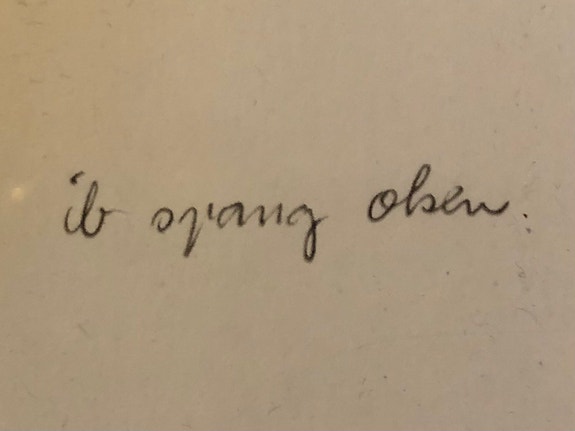 ib spang olsen.